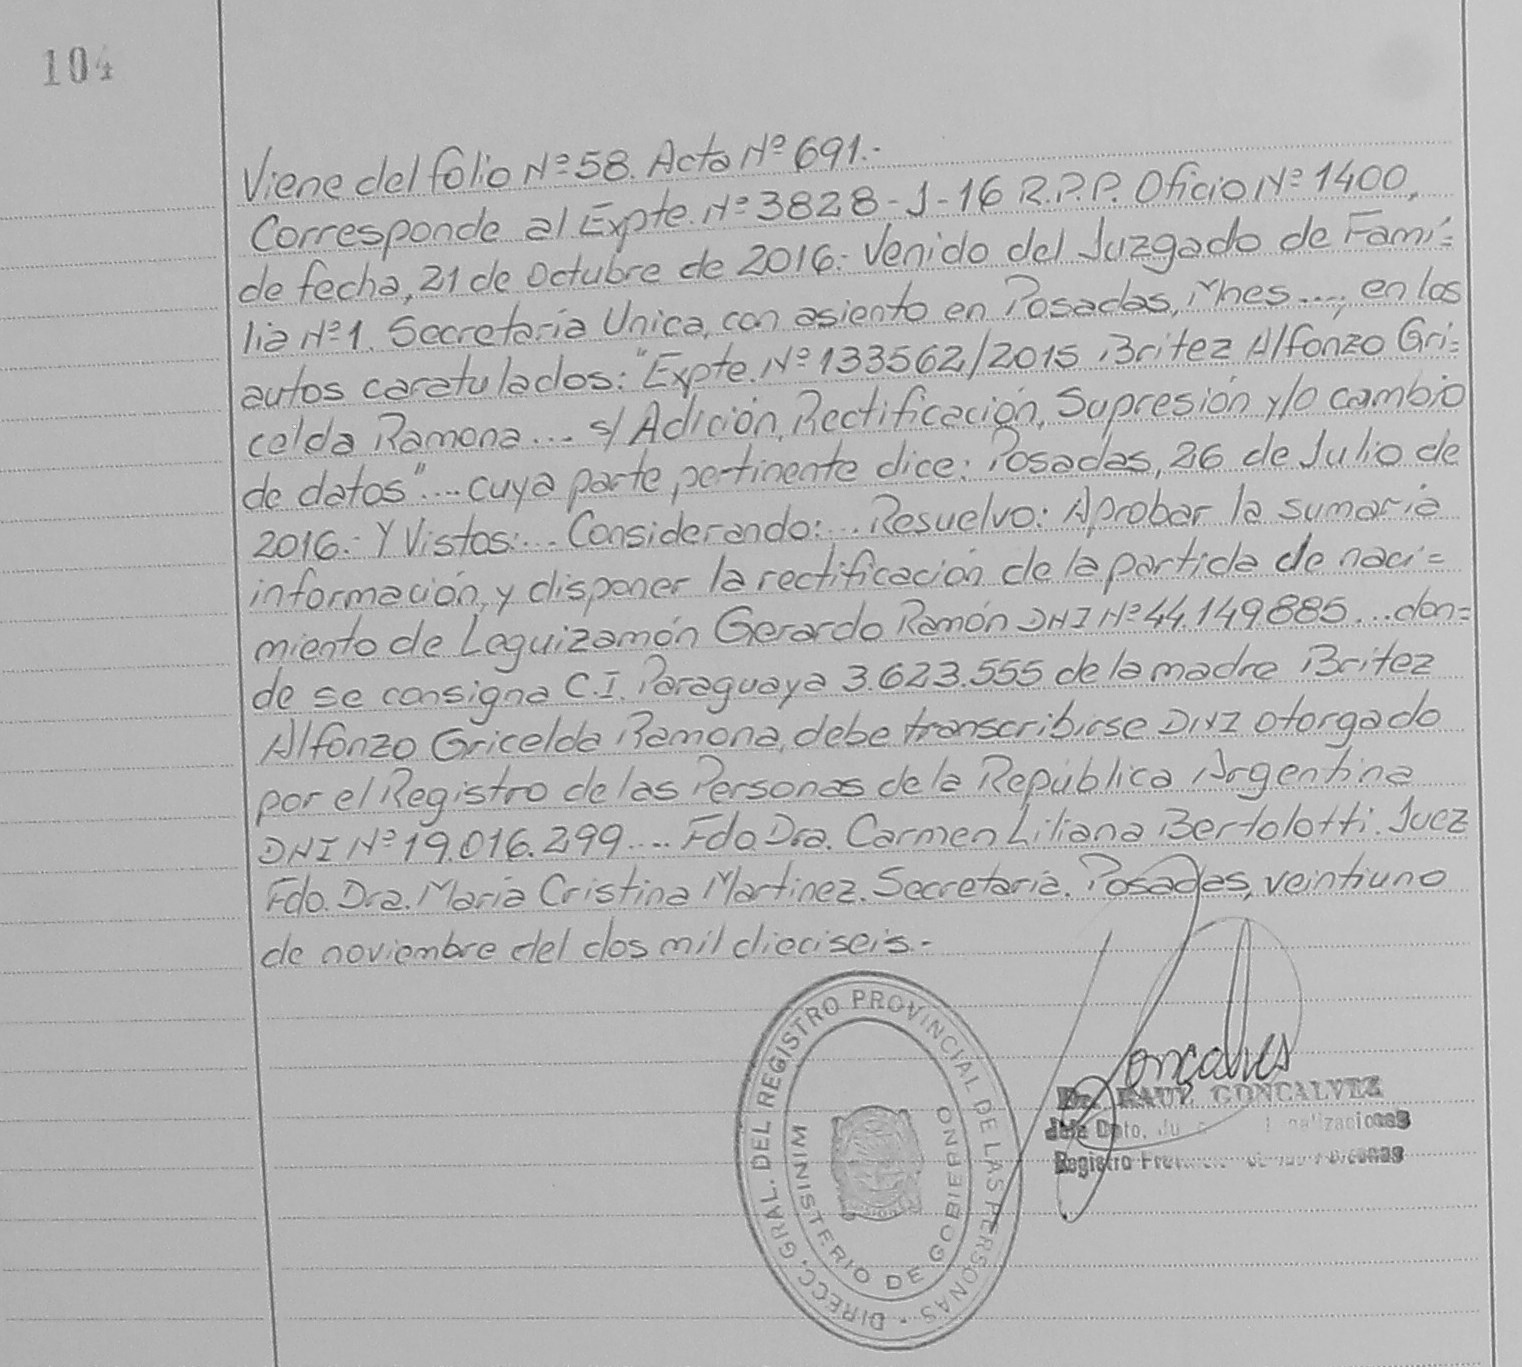 104
Viene del folio Nº 58. Acta Nº 691.-
Corresponde al Expte. Nº 3828-J-16 R.P.P. Oficio Nº 1400,
de fecha, 21 de Octubre de 2016.- Venido del Juzgado de Fami=
lia Nº 1. Secretaría Unica, con asiento en Posadas, Mnes...., en los
autos caratulados: "Expte. Nº 133562/2015 Britez Alfonzo Gri=
celda Ramona... s/ Adición, Rectificación, Supresión y/o cambio
de datos"....cuya parte pertinente dice: Posadas, 26 de Julio de
2016.- Y Vistos:... Considerando:... Resuelvo: Aprobar la sumaria
información, y disponer la rectificación de la partida de naci=
miento de Leguizamón Gerardo Ramón DNI Nº 44.149.885...don=
de se consigna C.I. Paraguaya 3.623.555 de la madre Britez
Alfonzo Gricelda Ramona, debe transcribirse DNI otorgado
por el Registro de las Personas de la República Argentina
DNI Nº 19.016.299.... Fdo Dra. Carmen Liliana Bertolotti. Juez
Fdo. Dra. María Cristina Martinez. Secretaria. Posadas, veintiuno
de noviembre del dos mil dieciseis.-
DIRECC. GRAL. DEL REGISTRO PROVINCIAL DE LAS PERSONAS
MINISTERIO DE GOBIERNO
Goncalves
Dr. RAUL GONCALVEZ
Jefe Dpto.
Registro